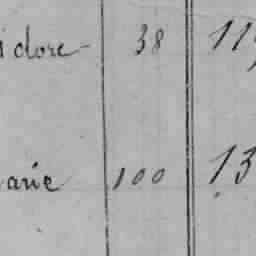 idore 38 11
arie 100 13